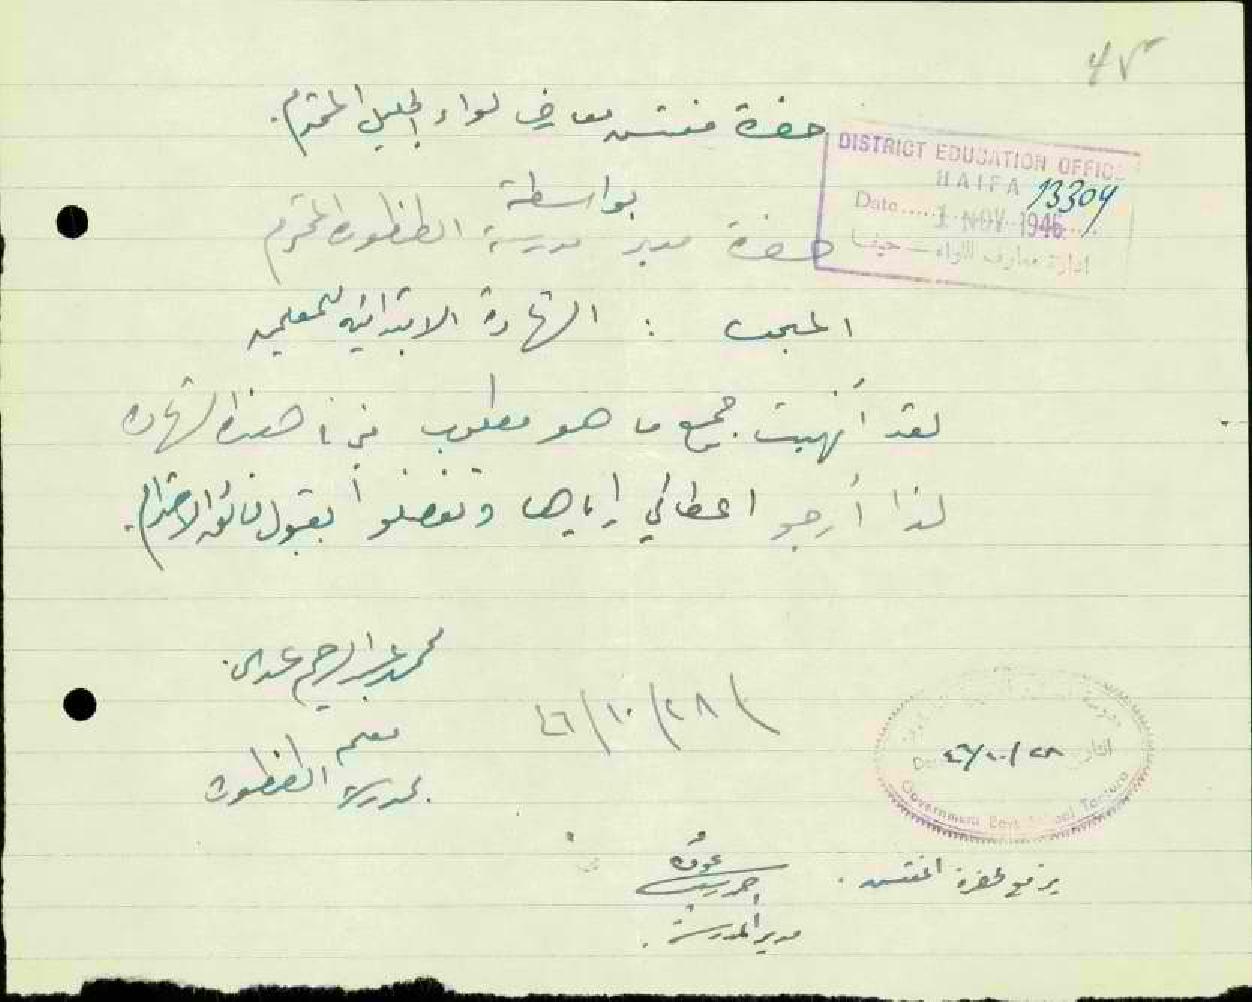 حضرة مفتش معارف لواء الجليل المحترم.
DISTRICT EDUCATION OFFICE
HAIFA
13304
Date..... 1 NOV 1946
ادارة معارف اللواء – حيفا
بواسطة
حضرة مدير مدرسة الطنطورة المحترم
المبحث : الشهادة الابتدائية للمعلمين
لقد أنهيت جميع ما هو مطلوب مني تجاه هذه الشهادة
لذا أرجو اعطائي إياها وتفضلوا بقبول فائق الاحترام.
محمد عبد الرحيم
معلم
بمدرسة الطنطورة
٤٦/١٠/٢٨
٤٦/١٠/٢٨
Government Boys School Tantura
يرفع لحضرة المفتش .
مدير المدرسة .